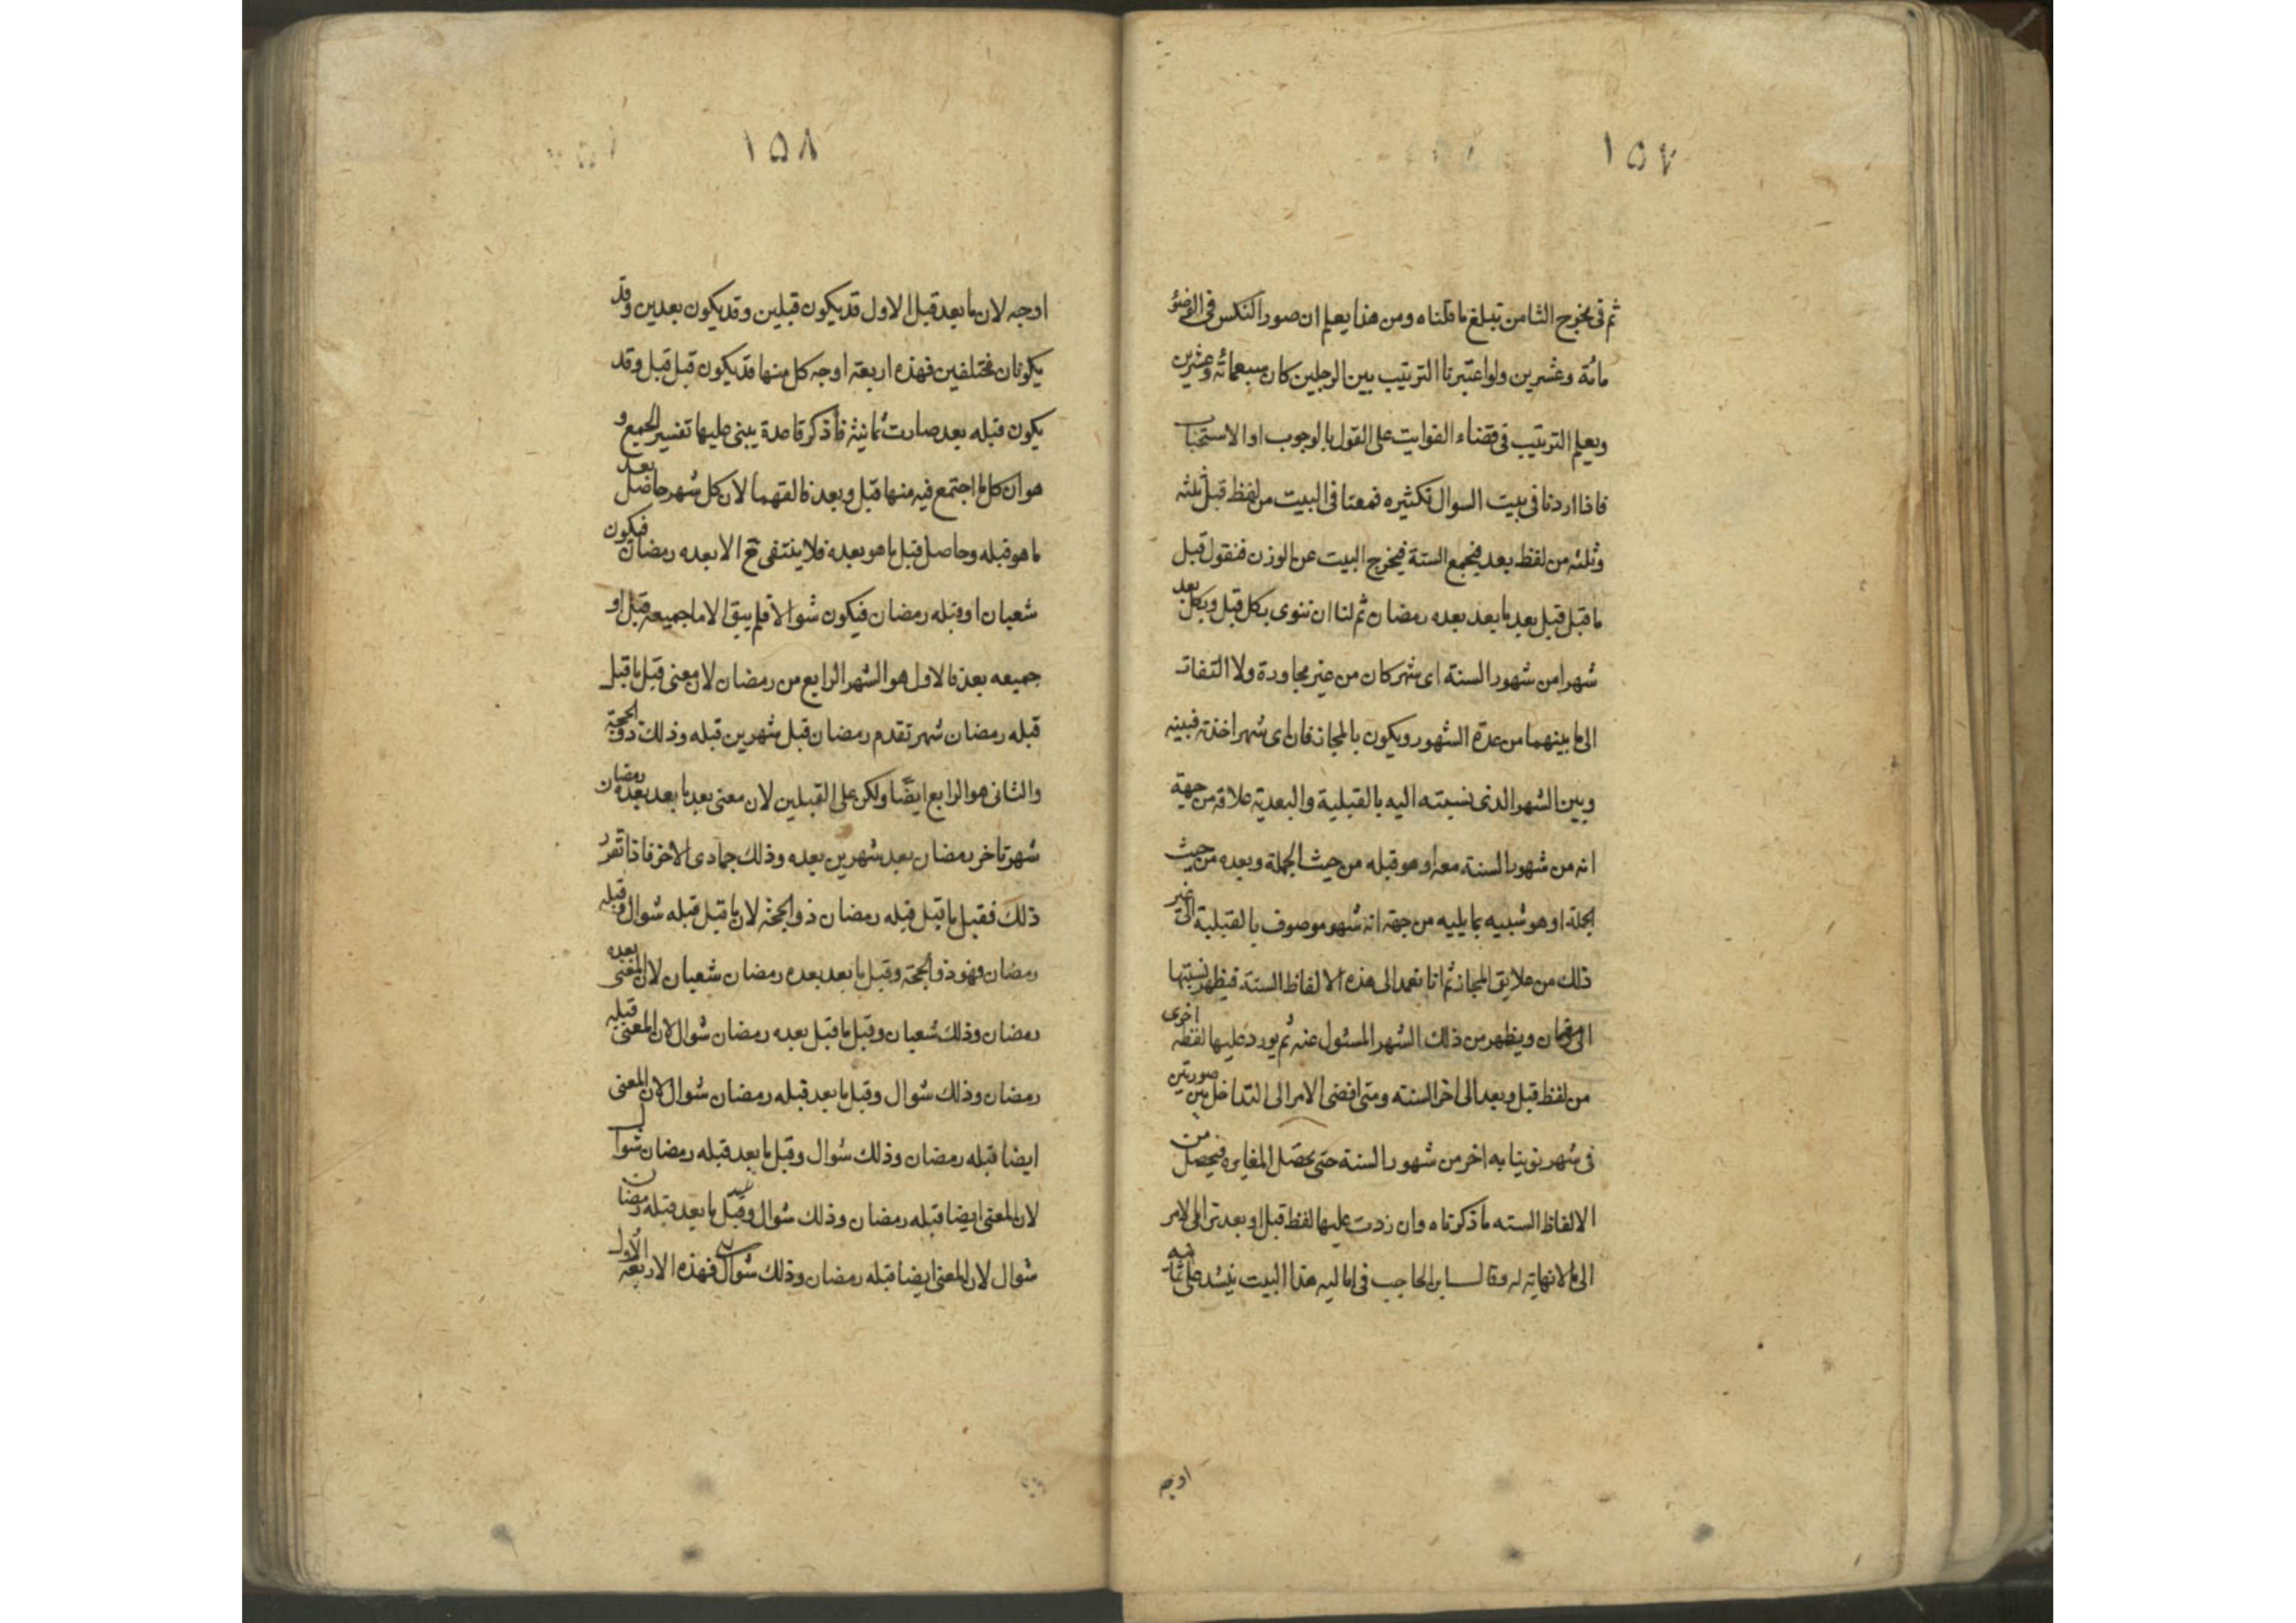 ١٥٧
ثم فى مخرج الثامن تبلغ ما قلناه ومن هذا يعلم ان صور النكس فى الوضوء
مائة وعشرين ولو اعتبرنا الترتيب بين الرجلين كان سبعمائة وعشرين
ويعلم الترتيب فى قضاء الفوايت على القول بالوجوب او الاستحباب
فاذا اردنا فى بيت السوال تكثيره فمعنا فى البيت من لفظ قبل ثلثه
وثلثه من لفظ بعد فيجمع الستة فيخرج البيت عن الوزن فنقول قبل
ما قبل قبل بعد ما بعد بعده رمضان ثم لنا ان ننوى بكل قبل وبكل بعد
شهرا من شهور السنة اى شهر كان من غير مجاورة ولا التفات
الى ما بينهما من عدة الشهور ويكون بالمجاز فان اى شهر اخذته فبينه
وبين الشهر الذى نسبته اليه بالقبلية والبعدية علاقة من جهة
انه من شهور السنة معه او هو قبله من حيث الجملة وبعده من حيث
الجملة او هو شبيه بما يليه من جهة انه شهر موصوف بالقبلية الى غير
ذلك من علايق المجاز ثم انا نعمد الى هذه الالفاظ الستة فيظهر نسبتها
الى رمضان ويظهر من ذلك الشهر المسئول عنه ثم يورد عليها لفظه اخرى
من لفظ قبل وبعد الى اخر السنه ومتى افضى الامر الى التداخل بين صورتين
فى شهر نوينا به اخر من شهور السنة حتى يحصل المغايره فيحصل من
الالفاظ السته ما ذكرناه وان زدت عليها لفظ قبل او بعد ترامى الامر
الى ما لانهاية له وقال ابن الحاجب فى اماليه هذا البيت ينشد على ثمانية
اوجه
١٥٨
اوجه لان ما بعد قبل الاول قد يكون قبلين وقد يكون بعدين وقد
يكونان مختلفين فهذه اربعة اوجه كل منها قد يكون قبل قبل وقد
يكون قبله بعد صارت ثمانية فاذكر قاعدة يبنى عليها تفسير الجميع و
هو ان كل ما اجتمع فيه منها قبل وبعد فالقهما لان كل شهر حاصل بعد
ما هو قبله وحاصل قبل ما هو بعده فلا ينتفى ح الا بعده رمضان فيكون
شعبان او قبله رمضان فيكون شوالا فلم يبق الا ما جميعه قبل او
جميعه بعد فالاول هو الشهر الرابع من رمضان لان معنى قبل ما قبل
قبله رمضان شهر تقدم رمضان قبل شهرين قبله وذلك ذو الحجة
والثانى هو الرابع ايضًا ولكن على القبلين لان معنى بعد ما بعد بعده رمضان
شهر تاخر رمضان بعد شهرين بعده وذلك جمادى الاخر فاذا تقرر
ذلك فقبل ما قبل قبله رمضان ذو الحجة لان ما قبل قبله شوال وقبله
رمضان فهو ذو الحجة وقبل ما بعد بعده رمضان شعبان لان المعنى بعده
رمضان وذلك شعبان وقبل ما قبل بعده رمضان شوال لان المعنى قبله
رمضان وذلك شوال وقبل ما بعد قبله رمضان شوال لان المعنى
ايضا قبله رمضان وذلك شوال وقبل ما بعد قبله رمضان شوال
لان المعنى ايضا قبله رمضان وذلك شوال وقبل ما بعد قبله رمضان
شوال لان المعنى ايضا قبله رمضان وذلك شوال فهذه الاربعة الاول